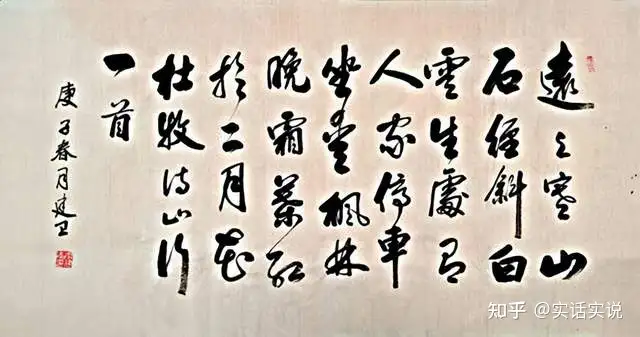 遠上寒山
石徑斜白
雲生處有
人家停車
坐愛楓林
晚霜葉紅
於二月花
杜牧诗山行
一首
庚子春月建卫
知乎 @实话实说